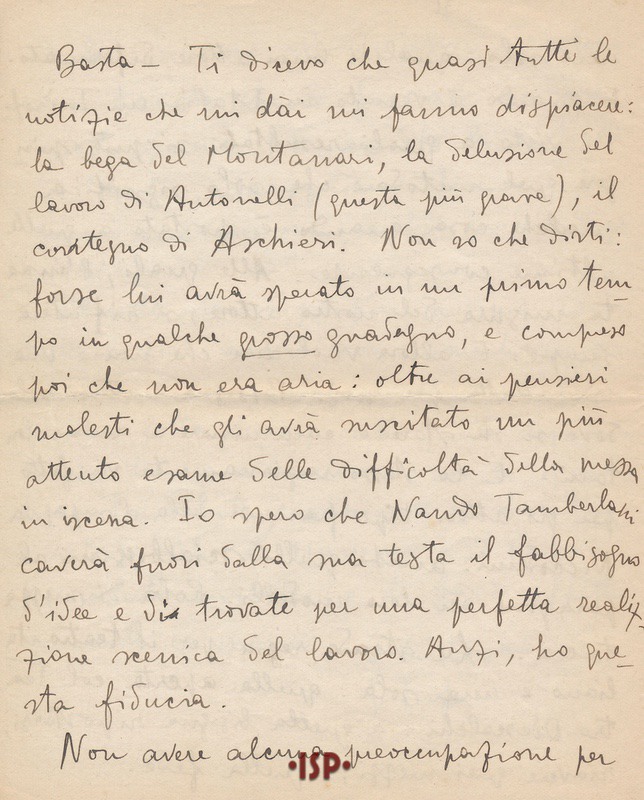 Basta – Ti dicevo che quasi tutte le
notizie che mi dài mi fanno dispiacere:
la bega del Montanari, la delusione del
lavoro di Antonelli (questa più grave), il
contegno di Aschieri. Non so che dirti:
forse lui avrà sperato in un primo tem-
po in qualche grosso guadagno, e compreso
poi che non era aria: oltre ai pensieri
molesti che gli avrà suscitato un più
attento esame delle difficoltà della messa
in iscena. Io spero che Nando Tamberlani
caverà fuori dalla sua testa il fabbisogno
d'idee e di trovate per una perfetta realiz-
zione scenica del lavoro. Anzi, ho que-
sta fiducia.
Non avere alcuna preoccupazione per
•ISP•